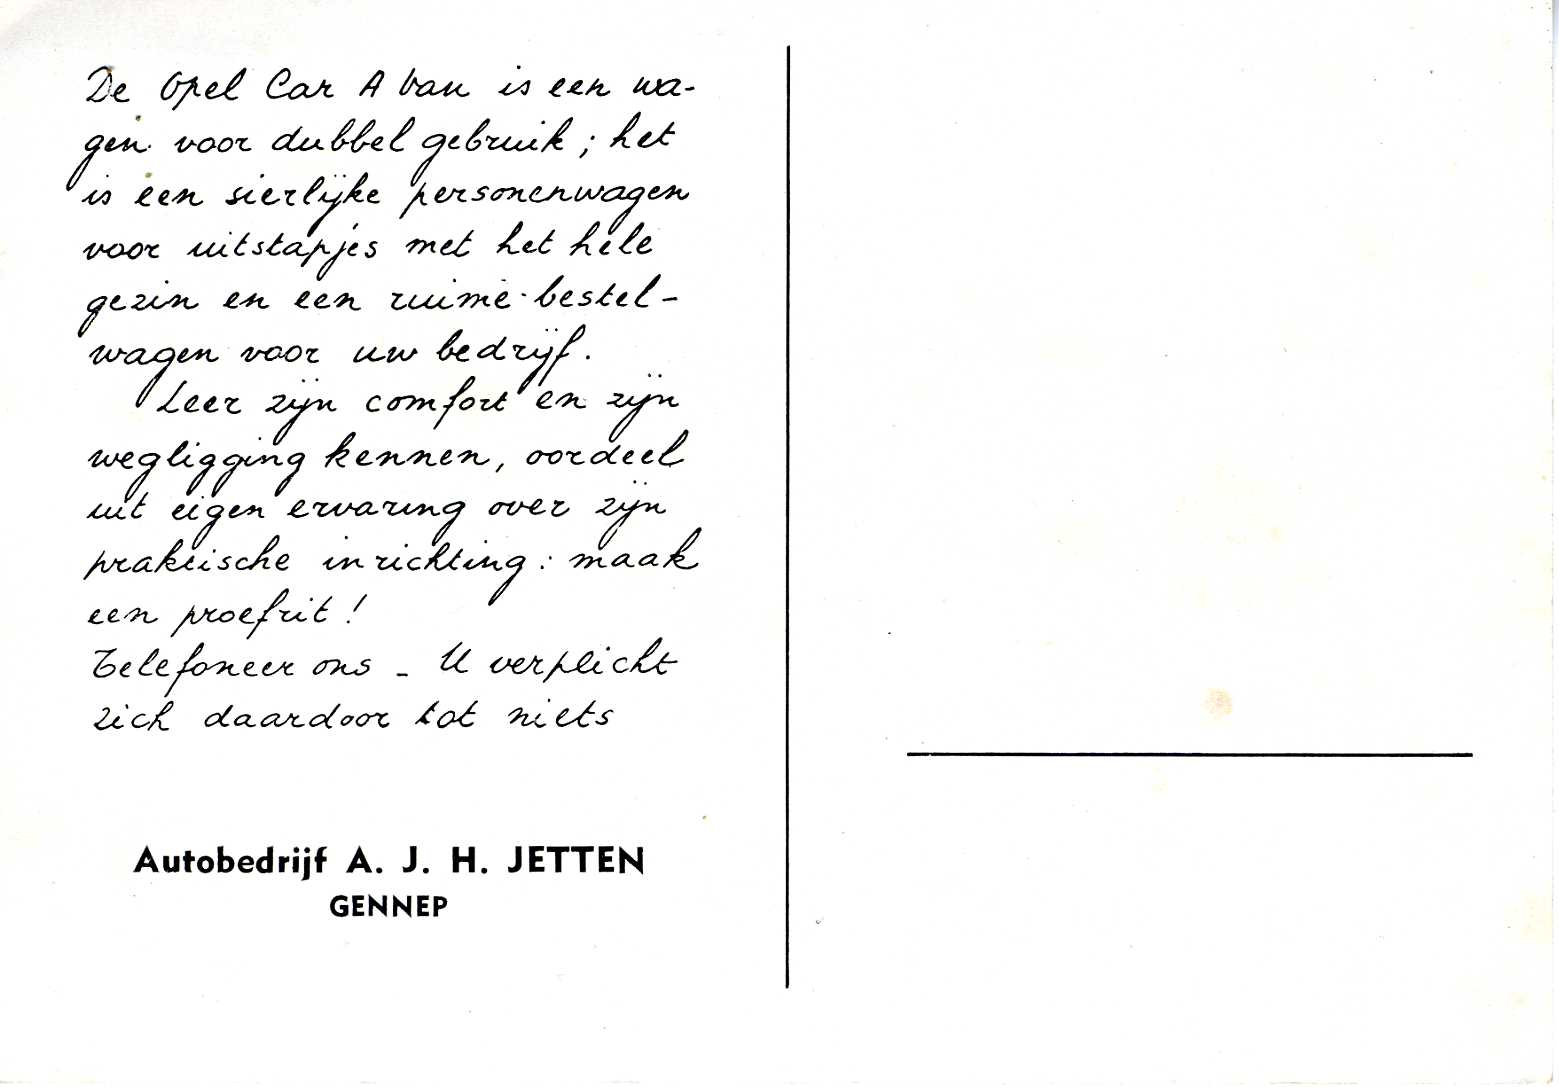 De Opel Car A Van is een wa-
gen voor dubbel gebruik; het
is een sierlijke personenwagen
voor uitstapjes met het hele
gezin en een ruime bestel-
wagen voor uw bedrijf.
Leer zijn comfort en zijn
wegligging kennen, oordeel
uit eigen ervaring over zijn
praktische inrichting: maak
een proefrit!
Telefoneer ons - U verplicht
zich daardoor tot niets
Autobedrijf A. J. H. JETTEN
GENNEP